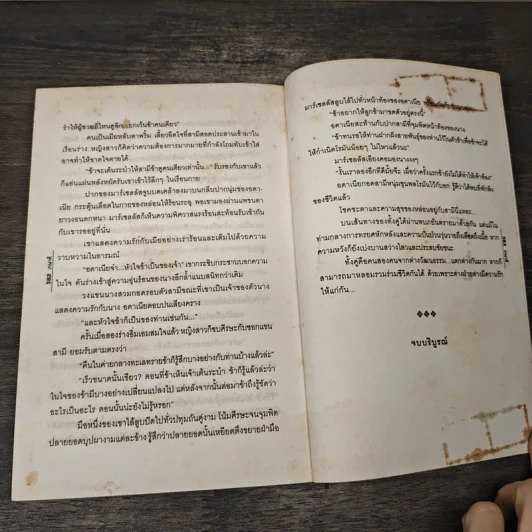 รำให้ผู้ชายที่ไหนดูอีก นอกเว้นข้าคนเดียว"
คนเป็นเมียหลับตาพริ้ม เสี้ยวอึดใจที่สามีสอดประสานเข้ามาใน
เรือนร่าง หญิงสาวก็คิดว่าความต้องการมากมายที่กำลังโถมทับเข้าใส่
อาจทำให้ขาดใจตายได้
"ข้าจะเต้นระบำให้สามีข้าดูคนเดียวเท่านั้น..." รับรองกับเขาแล้ว
ก็แอ่นแผ่นหลังหยัดรับเขาเข้าไว้ลึกๆ ในเรือนกาย
ปากของมาร์เซลลัสจูบเบตเคล้าลงมาบนกลีบปากนุ่มของอดา
เนีย กระตุ้นเลือดในกายของหล่อนให้ร้อนระอุ พอเขามองผ่านแพรนตา
ยาวงอนดกหนา มาร์เซลลัสก็เห็นความพิศวาสแรงร้อนสะท้อนรับเข้ากัน
กับเขารออยู่ที่นั่น
เขาแสดงความรักกับเมียอย่างเร่าร้อนและเติมไปด้วยความ
วาบหวามในอารมณ์
"อดาเนียจ๋า...หัวใจข้าเป็นของเจ้า" เขากระซิบกระซาบบอกความ
ในใจ ดันร่างเข้าสู่ความอุ่นร้อนของนางลึกล้ำแนบสนิทกว่าเดิม
วงแขนนางสวมกอดรอบตัวสามีขณะที่เขาเป็นเจ้าของตัวนาง
แสดงความรักกับนาง อดาเนียตอบปนเสียงคราง
"และหัวใจข้าก็เป็นของท่านเช่นกัน..."
ครั้นเมื่อสองร่างอิ่มเอมสมใจแล้ว หญิงสาวก็ซบศีรษะกับซอกแขน
สามี ยอมรับตามตรงว่า
"คืนในค่ายกลางทะเลทรายข้าก็รู้สึกบางอย่างกับท่านบ้างแล้วล่ะ"
"เร็วขนาดนั้นเชียว? ตอนที่ข้าเห็นเจ้าเต้นระบำ ข้าก็รู้แล้วล่ะว่า
ในใจของข้ามีบางอย่างเปลี่ยนแปลงไป แต่หลังจากนั้นต่อมาข้าถึงรู้ชัดว่า
อะไรเป็นอะไร ตอนนั้นน่ะยังไม่รู้หรอก"
มือหนึ่งของเขาไล้ลูบปัดไปทั่วปทุมถันคู่งาม โน้มศีรษะจนจุมพิต
ปลายยอดบุปผางามแต่ละข้าง รู้สึกว่าปลายยอดนั้นเหยียดตึงขยายฝ่ามือ
382
มาร์เซลลัสลูบไล้ไปทั่วหน้าท้องของอดาเนีย
"ข้าอยากให้ลูกข้ามาขดตัวอยู่ตรงนี้"
อดาเนียสะท้านกับปากสามีที่จุมพิตหน้าท้องของนาง
ให้กำเนิดโรมันน้อยๆ ไม่ไหวแล้วนะ"
มาร์เซลลัสเงียบคอมองนางงงๆ
อดาเนียกอดสามีหนุ่มขุนพลโรมันไว้กับอก รู้ดีว่าได้พบที่พักพิง
ของชีวิตแล้ว
โชคชะตาและความสุขของหล่อนอยู่กับสามีนี่แหละ...
บนเส้นทางของทั้งคู่ได้ผ่านพบกบี้ยดรามาด้วยกัน แต่แม้ใน
ท่ามกลางการหรยศหักหลังและความปั่นป่วนวุ่นวายถึงเลือดถึงเนื้อ หาก
ความหวังก็ยังเบ่งบานสว่างไสวและประสบชัยชนะ
ทั้งคู่คือคนสองคนจากต่างวัฒนธรรม...แตกต่างกันมาก หากก็
สามารถมาหลอมรวมร่วมชีวิตกันได้ ด้วยเพราะต่างฝ่ายต่างมีความรัก
ให้แก่กัน...
❖❖❖
จบบริบูรณ์